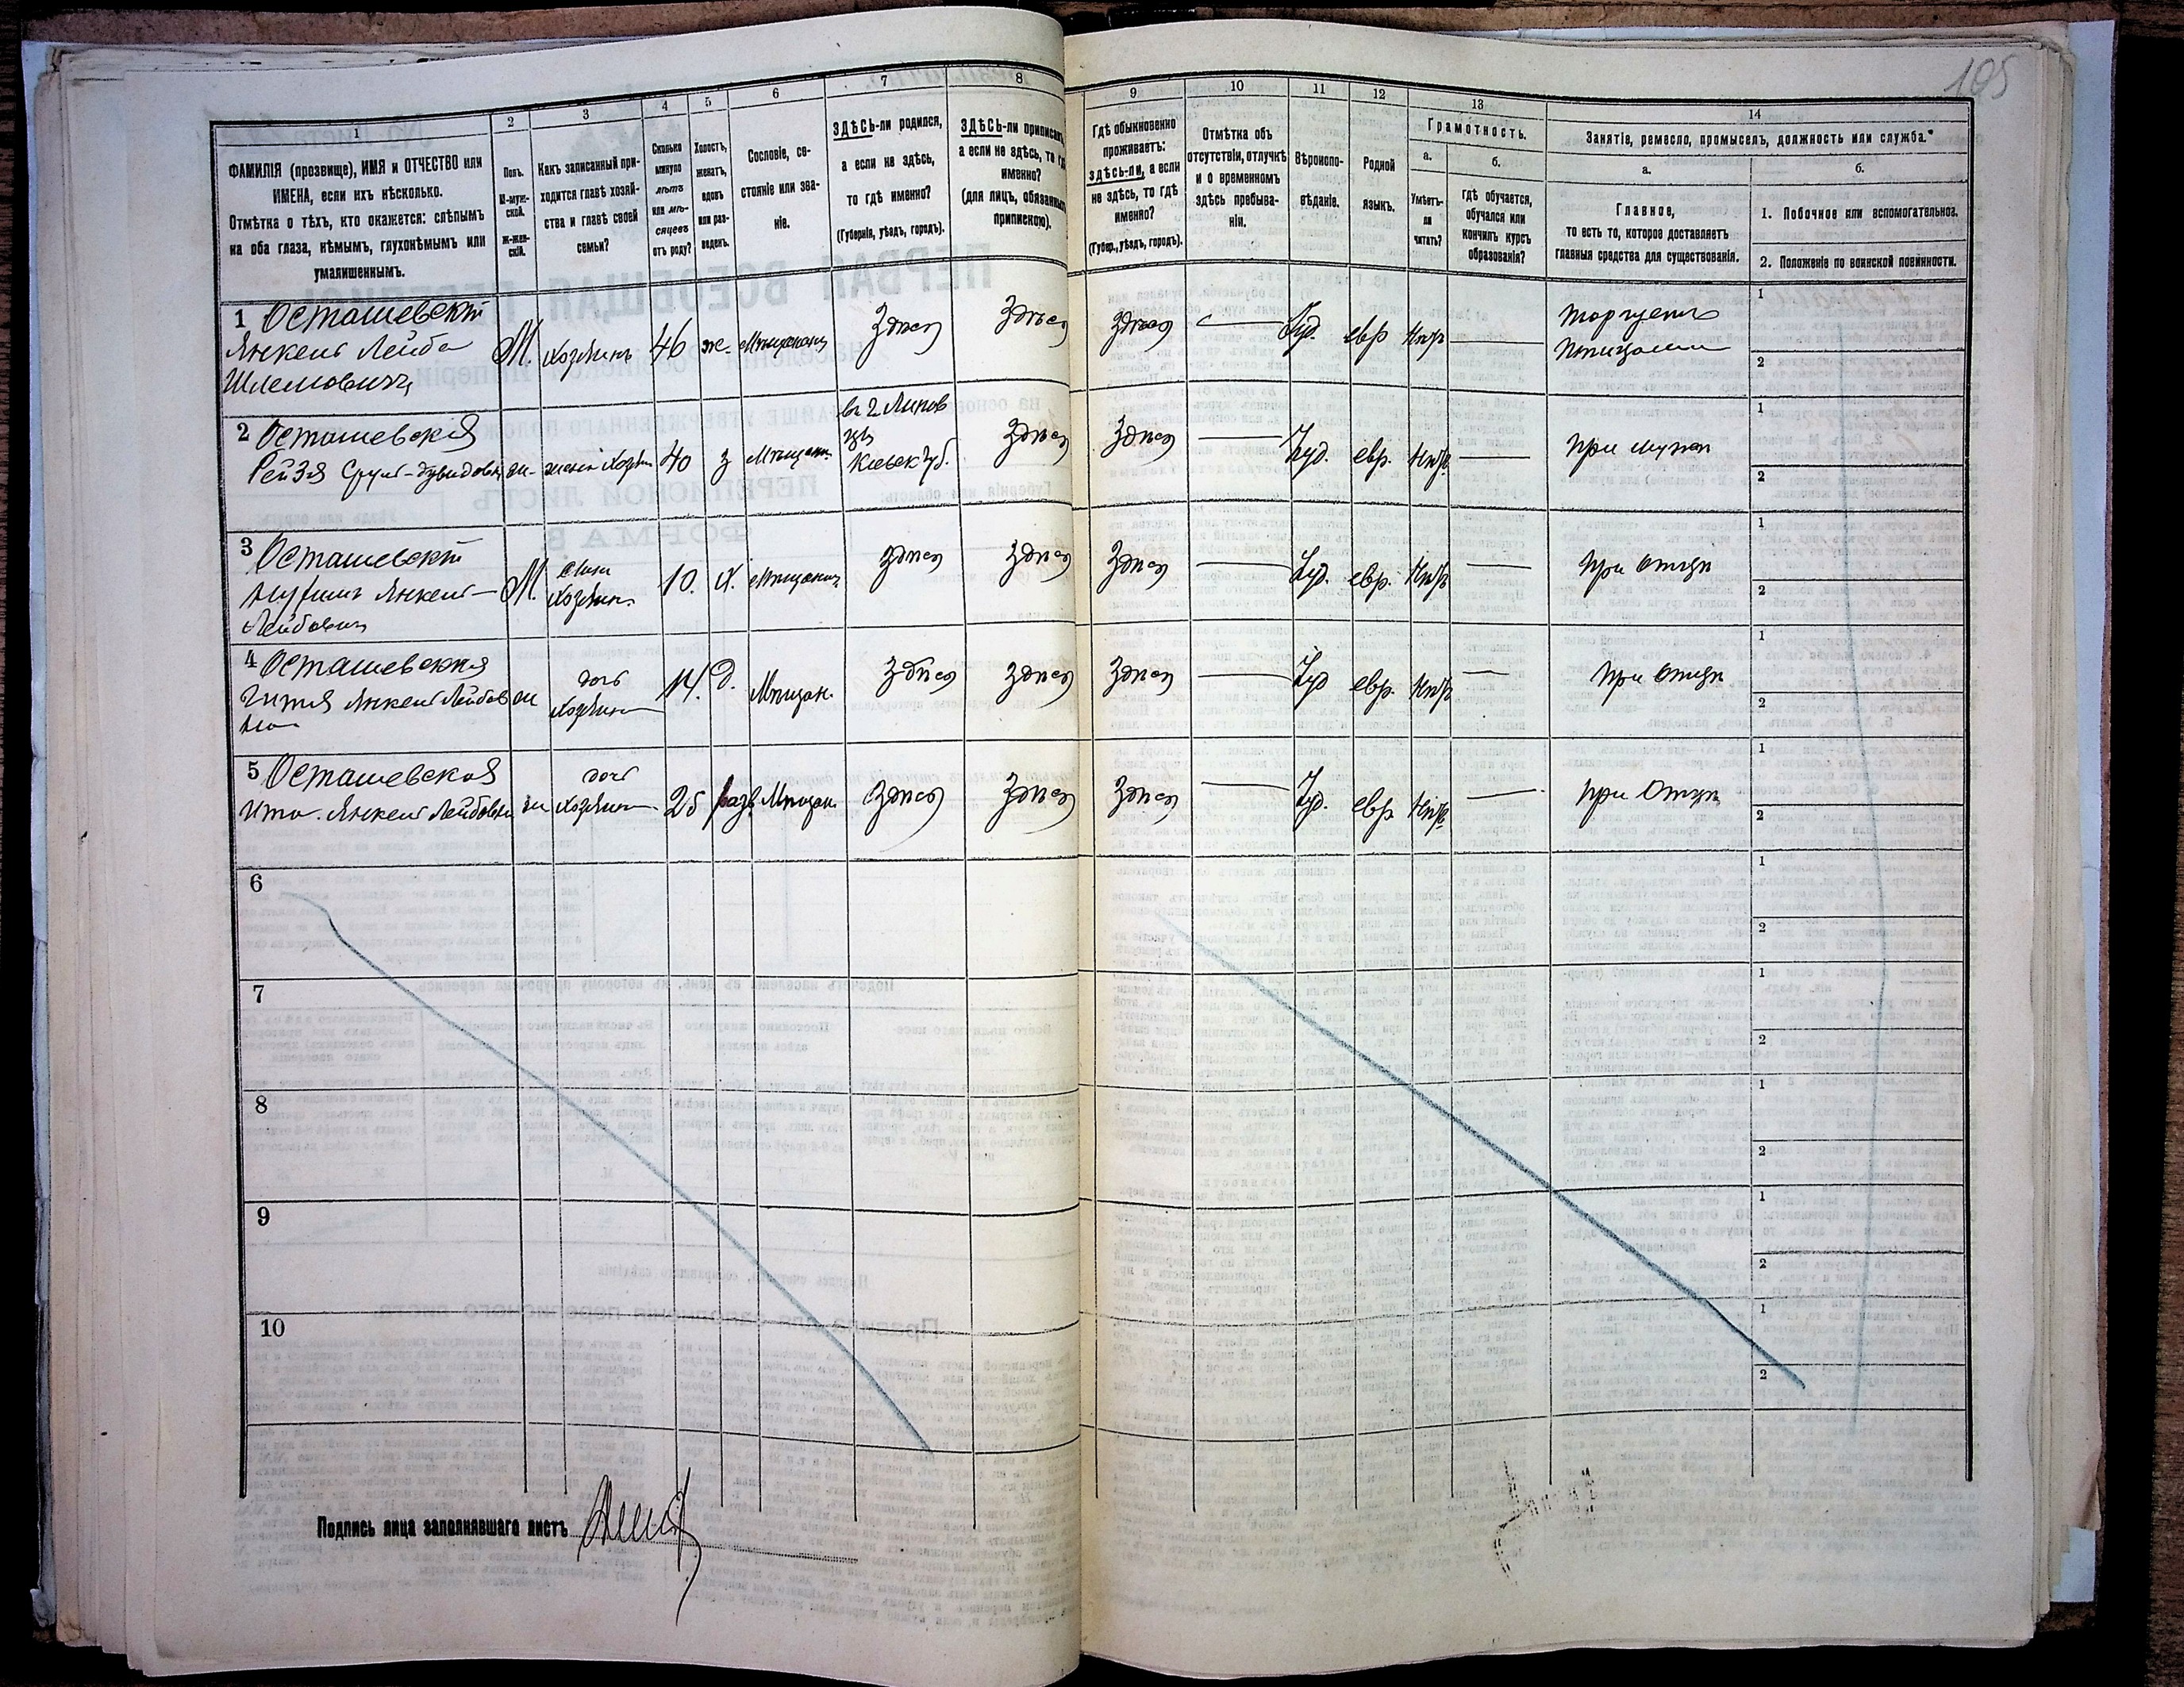 105
1 2 3 4 5 6 7 8 9 10 11 12 13 14
ФАМИЛІЯ (прозвище), ИМЯ и ОТЧЕСТВО или
ИМЕНА, если ихъ нѣсколько.
Отмѣтка о тѣхъ, кто окажется: слѣпымъ
на оба глаза, нѣмымъ, глухонѣмымъ или
умалишеннымъ.
Полъ.
М-муж-
ской.
ж-жен-
скій.
Какъ записанный при-
ходится главѣ хозяй-
ства и главѣ своей
семьи?
Сколько
минуло
лѣтъ
или мѣ-
сяцевъ
отъ роду?
Холостъ,
женатъ,
вдовъ
или раз-
веденъ.
Сословіе, со-
стояніе или зва-
ніе.
ЗДѢСЬ-ли родился,
а если не здѣсь,
то гдѣ именно?
(Губернія, уѣздъ, городъ).
ЗДѢСЬ-ли приписанъ,
а если не здѣсь, то гдѣ
именно?
(для лицъ, обязанныхъ
припискою).
Гдѣ обыкновенно
проживаетъ:
здѣсь-ли, а если
не здѣсь, то гдѣ
именно?
(Губер., уѣздъ, городъ).
Отмѣтка объ
отсутствіи, отлучкѣ
и о временномъ
здѣсь пребыва-
ніи.
Вѣроиспо-
вѣданіе.
Родной
языкъ.
Грамотность.
а.
Умѣетъ-
ли
читать?
б.
Гдѣ обучается,
обучался или
кончилъ курсъ
образованія?
Занятіе, ремесло, промыселъ, должность или служба.*
а.
Главное,
то есть то, которое доставляетъ
главныя средства для существованія.
б.
1. Побочное или вспомогательное.
2. Положеніе по воинской повинности.
1 Осташевскій
Янкель Лейба
Шлемовичъ
М. Хозяинъ 46 ж. Мѣщанинъ Здѣсь Здѣсь Здѣсь — Іуд. евр Нѣтъ — Торгуетъ
Птицами
1
2
2 Осташевская
Рейзя Сруль-Дувидовн ж. жена Хозяин 40 з Мѣщан. въ г Липов
цѣ
Кіевск Губ.
Здѣсь Здѣсь — Іуд. евр. Нѣтъ — При мужѣ
1
2
3 Осташевскій
Янкель-
Лейбовичъ
М. сынъ
Хозяин.
10. Х. Мѣщанинъ Здѣсь Здѣсь Здѣсь — Іуд. евр. Нѣтъ — При отцѣ
1
2
4 Осташевская
Гитля Янкель Лейбов
на
ж дочь
Хозяин
14. д. Мѣщан. Здѣсь Здѣсь Здѣсь — Іуд евр. Нѣтъ — При отцѣ
1
2
5 Осташевская
Ита Янкель Лейбовн ж дочь
Хозяин
25 разв. Мѣщан. Здѣсь Здѣсь Здѣсь — Іуд. евр. Нѣтъ — При Отцѣ
1
2
6
1
2
7
1
2
8
1
2
9
1
2
10
1
2
Подпись лица заполнявшаго листъ